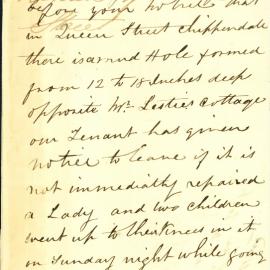 before your notice that
in Queen Street Chippendale
there is a mud Hole formed
from 12 to 18 Inches deep
opposite Mr Leslies Cottage
our Tenant has given
notice to leave if it is
not immediatly repaired
a Lady and two children
went up to their knees in it
on Sunday night while going